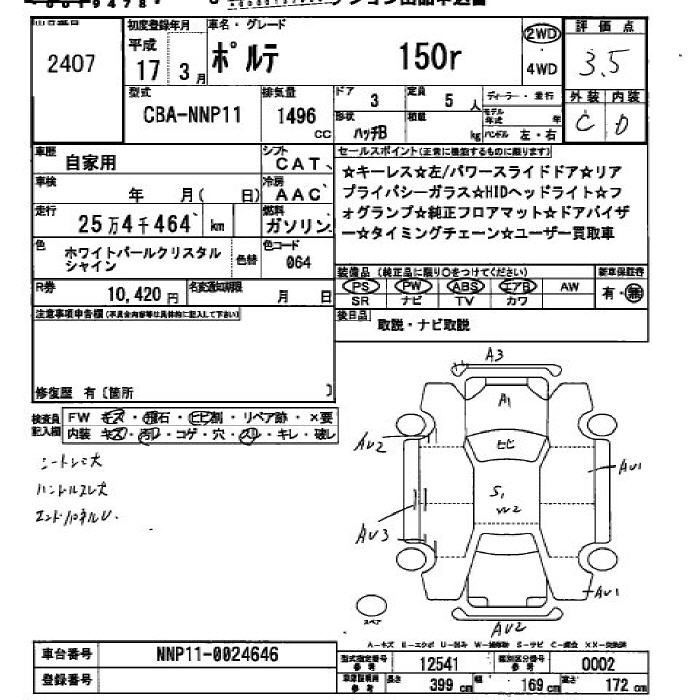 初度登録年月
車名・グレード
評価点
2407
平成
17 3月
ポルテ 150r
2WD
4WD
3.5
型式
CBA-NNP11
排気量
1496 cc
ドア 3
定員 5 人
ディーラー・並行
外装 内装
C D
形状 ハッチB
積載 kg
モデル年式 年
ハンドル 左・右
車歴 自家用
シフト CAT
セールスポイント(正常に機能するものに限ります)
☆キーレス☆左/パワースライドドア☆リア
プライバシーガラス☆HIDヘッドライト☆フ
ォグランプ☆純正フロアマット☆ドアバイザ
ー☆タイミングチェーン☆ユーザー買取車
車検 年 月( 日)
冷房 AAC
走行 25万4千464 km
燃料 ガソリン
色 ホワイトパールクリスタル
シャイン
色替
色コード 064
装備品 (純正品に限り○をつけてください)
新車保証書
PS PW ABS エアB AW
SR ナビ TV カワ
有・無
R券 10,420円
名変通知期限 月 日
後日品 取説・ナビ取説
注意事項申告欄(不具合内容等は具体的に記入して下さい)
修復歴 有〔箇所 〕
検査員
記入欄
FW キズ・飛石・ヒビ割・リペア跡・×要
内装 キズ・汚レ・コゲ・穴・スレ・キレ・破レ
シートシミ大
ハンドルスレ大
エンドパネルU.
A3
A1
ヒビ
AU2
AU1
S1
W2
AU3
AU1
AU2
スペア
車台番号 NNP11-0024646
登録番号
型式指定番号 参考 12541
類別区分番号 参考 0002
長さ 399 cm
幅 169 cm
高さ 172 cm